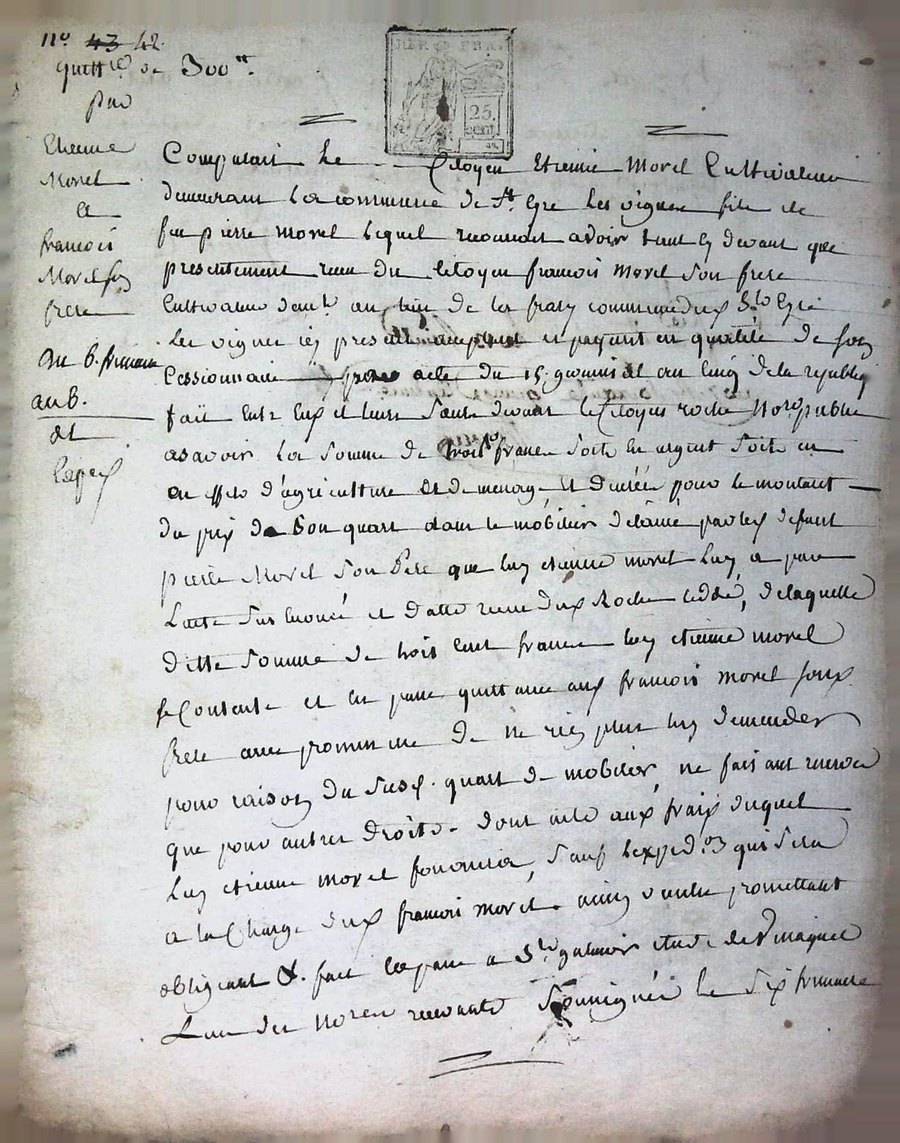 N° 43 42
quitt.ce de 300 tt.
par
Etienne
Morel
a
francois
Morel son
frere
du 6. frimaire
an 6.
dt
l'exped
REP. FRA.
25.
cent.
Comparait le Citoyen Etienne Morel Cultivateur
demeurant la commune de St. Cyre les vignes fils de
feu pierre morel lequel reconnait avoir tant cy devant que
presentement recu du Citoyen francois Morel son frere
Cultivateur dem.t au lieu de la commune dud St Cyre
les vignes icy present acceptant et payant en qualité de son
Cessionnaire acte du 15 germinal an cinq de la republiq
fait entr'eux et leurs devant le Citoyen roche Not.re public
a savoir la somme de trois francs soit en argent soit en
en effets d'agriculture et de menage et denrée pour le montant
du prix de son quart dans le mobilier delaissé par led defunt
pierre Morel son Pere que luy etienne morel luy a
L'acte sus enoncé et datté recu dud Roche cedé, de laquelle
ditte somme de trois cent francs luy etienne morel
se Contente et en passe quittance aud francois morel sond
frere avec promesse de ne rien plus luy demander
pour raison du susd. quart de mobilier, ne faisant reserve
que pour autres droits. dont acte aux fraix duquel
luy etienne morel fournira, sauf l'expedon qui sera
a la Charge dud francois morel. ainsy promettant
obligeant &. fait et passé a St galmier etude de
L'un des Nores recevants soussignés le six frimaire